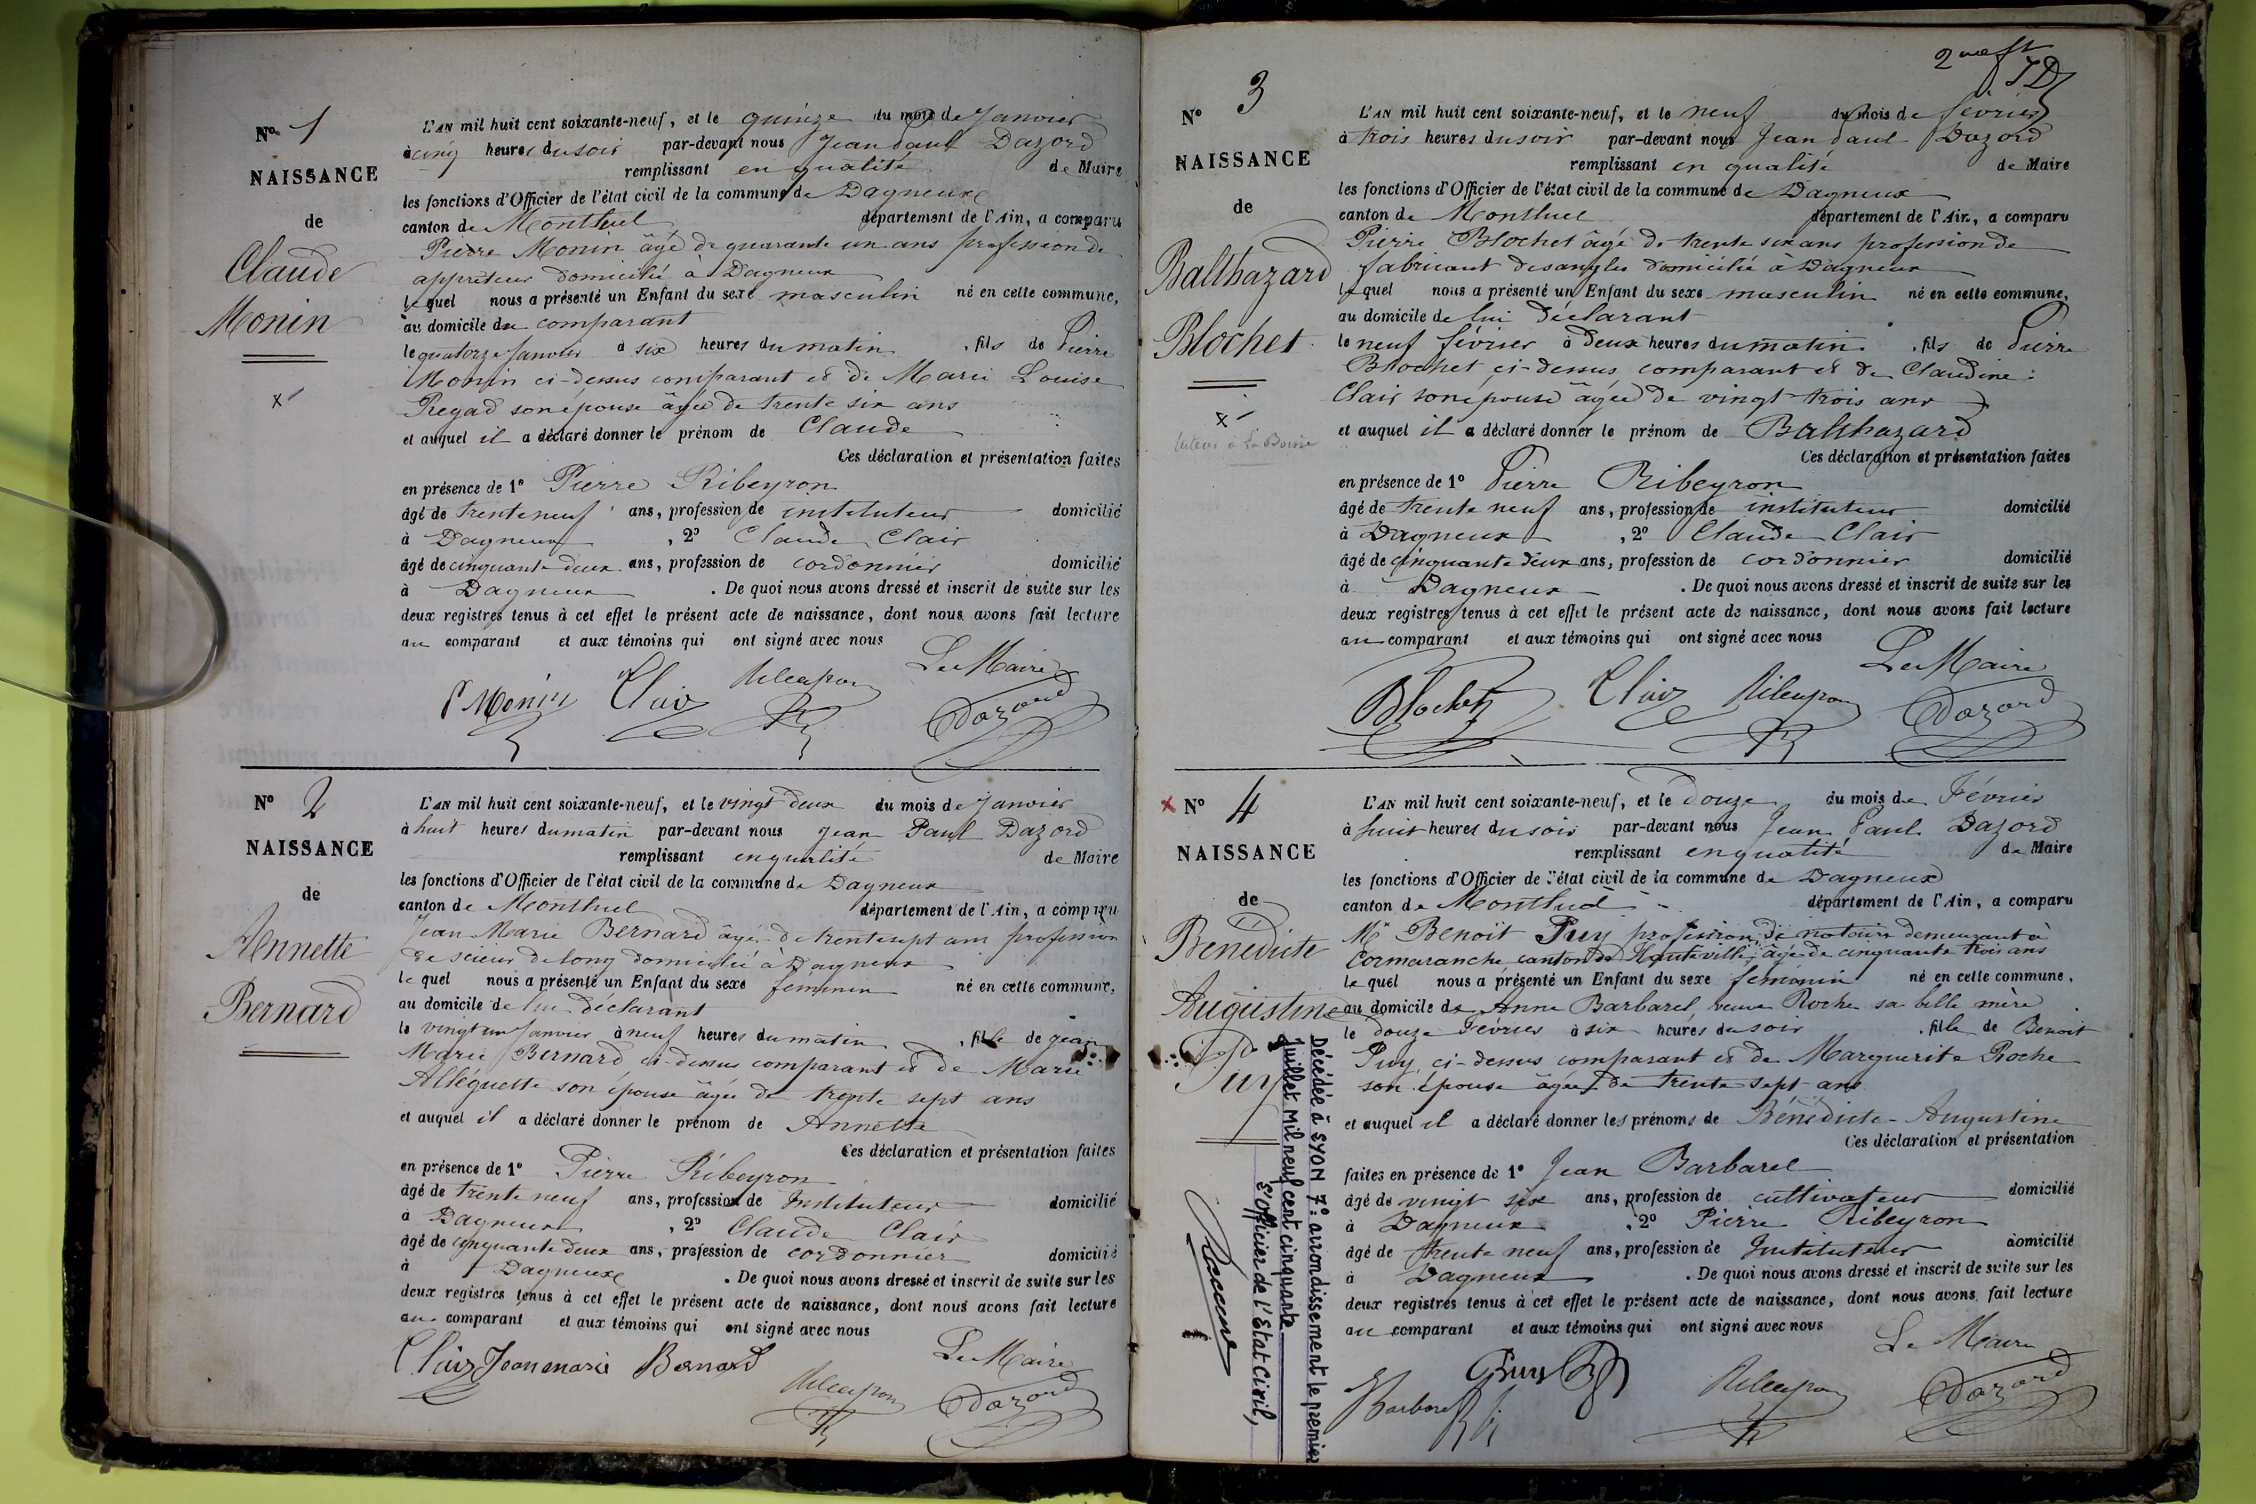 N° 1
NAISSANCE
de
Claude
Monin
L'AN mil huit cent soixante-neuf, et le quinze du mois de Janvier
à cinq heures du soir par-devant nous Jean Paul Dazord
remplissant en qualité de Maire
les fonctions d'Officier de l'état civil de la commune de Dagneux
canton de Montluel département de l'Ain, a comparu
Pierre Monin âgé de quarante un ans profession de
apprêteur domicilié à Dagneux
lequel nous a présenté un Enfant du sexe masculin né en cette commune,
au domicile du comparant
le quatorze Janvier à six heures du matin, fils de Pierre
Monin ci-dessus comparant et de Marie Louise
Regad son épouse âgée de trente six ans
et auquel il a déclaré donner le prénom de Claude
Ces déclaration et présentation faites
en présence de 1° Pierre Ribeyron
âgé de trente neuf ans, profession de instituteur domicilié
à Dagneux, 2° Claude Clair
âgé de cinquante deux ans, profession de cordonnier domicilié
à Dagneux. De quoi nous avons dressé et inscrit de suite sur les
deux registres tenus à cet effet le présent acte de naissance, dont nous avons fait lecture
au comparant et aux témoins qui ont signé avec nous
Le Maire
P Monin Clair Ribeyron Dazord
N° 2
NAISSANCE
de
Annette
Bernard
L'AN mil huit cent soixante-neuf, et le vingt deux du mois de Janvier
à huit heures du matin par-devant nous Jean Paul Dazord
remplissant en qualité de Maire
les fonctions d'Officier de l'état civil de la commune de Dagneux
canton de Montluel département de l'Ain, a comparu
Jean Marie Bernard âgé de trente sept ans profession
de scieur de long domicilié à Dagneux
lequel nous a présenté un Enfant du sexe féminin né en cette commune,
au domicile de lui déclarant
le vingt un Janvier à neuf heures du matin, fille de Jean
Marie Bernard ci-dessus comparant et de Marie
Alléguette son épouse âgée de trente sept ans
et auquel il a déclaré donner le prénom de Annette
Ces déclaration et présentation faites
en présence de 1° Pierre Ribeyron
âgé de trente neuf ans, profession de Instituteur domicilié
à Dagneux, 2° Claude Clair
âgé de cinquante deux ans, profession de cordonnier domicilié
à Dagneux. De quoi nous avons dressé et inscrit de suite sur les
deux registres tenus à cet effet le présent acte de naissance, dont nous avons fait lecture
au comparant et aux témoins qui ont signé avec nous
Le Maire
Clair Jean marie Bernard Ribeyron Dazord
N° 3
NAISSANCE
de
Balthazard
Blochet
L'AN mil huit cent soixante-neuf, et le neuf du mois de février
à trois heures du soir par-devant nous Jean Paul Dazord
remplissant en qualité de Maire
les fonctions d'Officier de l'état civil de la commune de Dagneux
canton de Montluel département de l'Ain, a comparu
Pierre Blochet âgé de trente six ans profession de
fabricant de sangles domicilié à Dagneux
lequel nous a présenté un Enfant du sexe masculin né en cette commune,
au domicile de lui déclarant
le neuf février à deux heures du matin, fils de Pierre
Blochet ci-dessus comparant et de Claudine
Clair son épouse âgée de vingt trois ans
et auquel il a déclaré donner le prénom de Balthazard
Ces déclaration et présentation faites
en présence de 1° Pierre Ribeyron
âgé de trente neuf ans, profession de instituteur domicilié
à Dagneux, 2° Claude Clair
âgé de cinquante deux ans, profession de cordonnier domicilié
à Dagneux. De quoi nous avons dressé et inscrit de suite sur les
deux registres tenus à cet effet le présent acte de naissance, dont nous avons fait lecture
au comparant et aux témoins qui ont signé avec nous
Le Maire
Blochet Clair Ribeyron Dazord
N° 4
NAISSANCE
de
Bénédicte
Augustine
Puy
Décédée à LYON 7° arrondissement le premier
Juillet Mil neuf cent cinquante
L'Officier de l'Etat Civil,
L'AN mil huit cent soixante-neuf, et le douze du mois de Février
à huit heures du soir par-devant nous Jean Paul Dazord
remplissant en qualité de Maire
les fonctions d'Officier de l'état civil de la commune de Dagneux
canton de Montluel département de l'Ain, a comparu
Mr Benoit Puy profession de notaire demeurant à
Cormaranche canton de Hauteville, âgé de cinquante trois ans
lequel nous a présenté un Enfant du sexe féminin né en cette commune,
au domicile de Anne Barbarel, veuve Roche sa belle mère
le douze Février à six heures du soir, fille de Benoit
Puy, ci-dessus comparant et de Marguerite Roche
son épouse âgée de trente sept ans
et auquel il a déclaré donner les prénoms de Bénédicte-Augustine
Ces déclaration et présentation
faites en présence de 1° Jean Barbarel
âgé de vingt six ans, profession de cultivateur domicilié
à Dagneux, 2° Pierre Ribeyron
âgé de trente neuf ans, profession de Instituteur domicilié
à Dagneux. De quoi nous avons dressé et inscrit de suite sur les
deux registres tenus à cet effet le présent acte de naissance, dont nous avons fait lecture
au comparant et aux témoins qui ont signé avec nous
Le Maire
Barbarel Puy Ribeyron Dazord